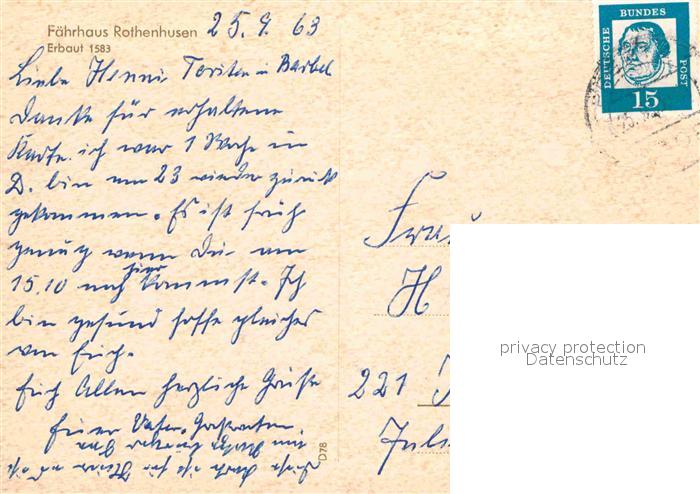 Fährhaus Rothenhusen 25.9.63
Erbaut 1583
Liebe Henni Torsten u Bärbel
Danke für erhaltene
Karte. ich war 1 Woche in
D. bin am 23 wieder zurück
gekommen. Es ist früh
genug wenn Du am
15.10 nach hier kommst. Ich
bin gesund hoffe gleiches
von Euch.
Euch Allen herzliche Grüße
Euer Vater
D78
DEUTSCHE
BUNDES
POST
15
Frau
H
221
privacy protection
Datenschutz